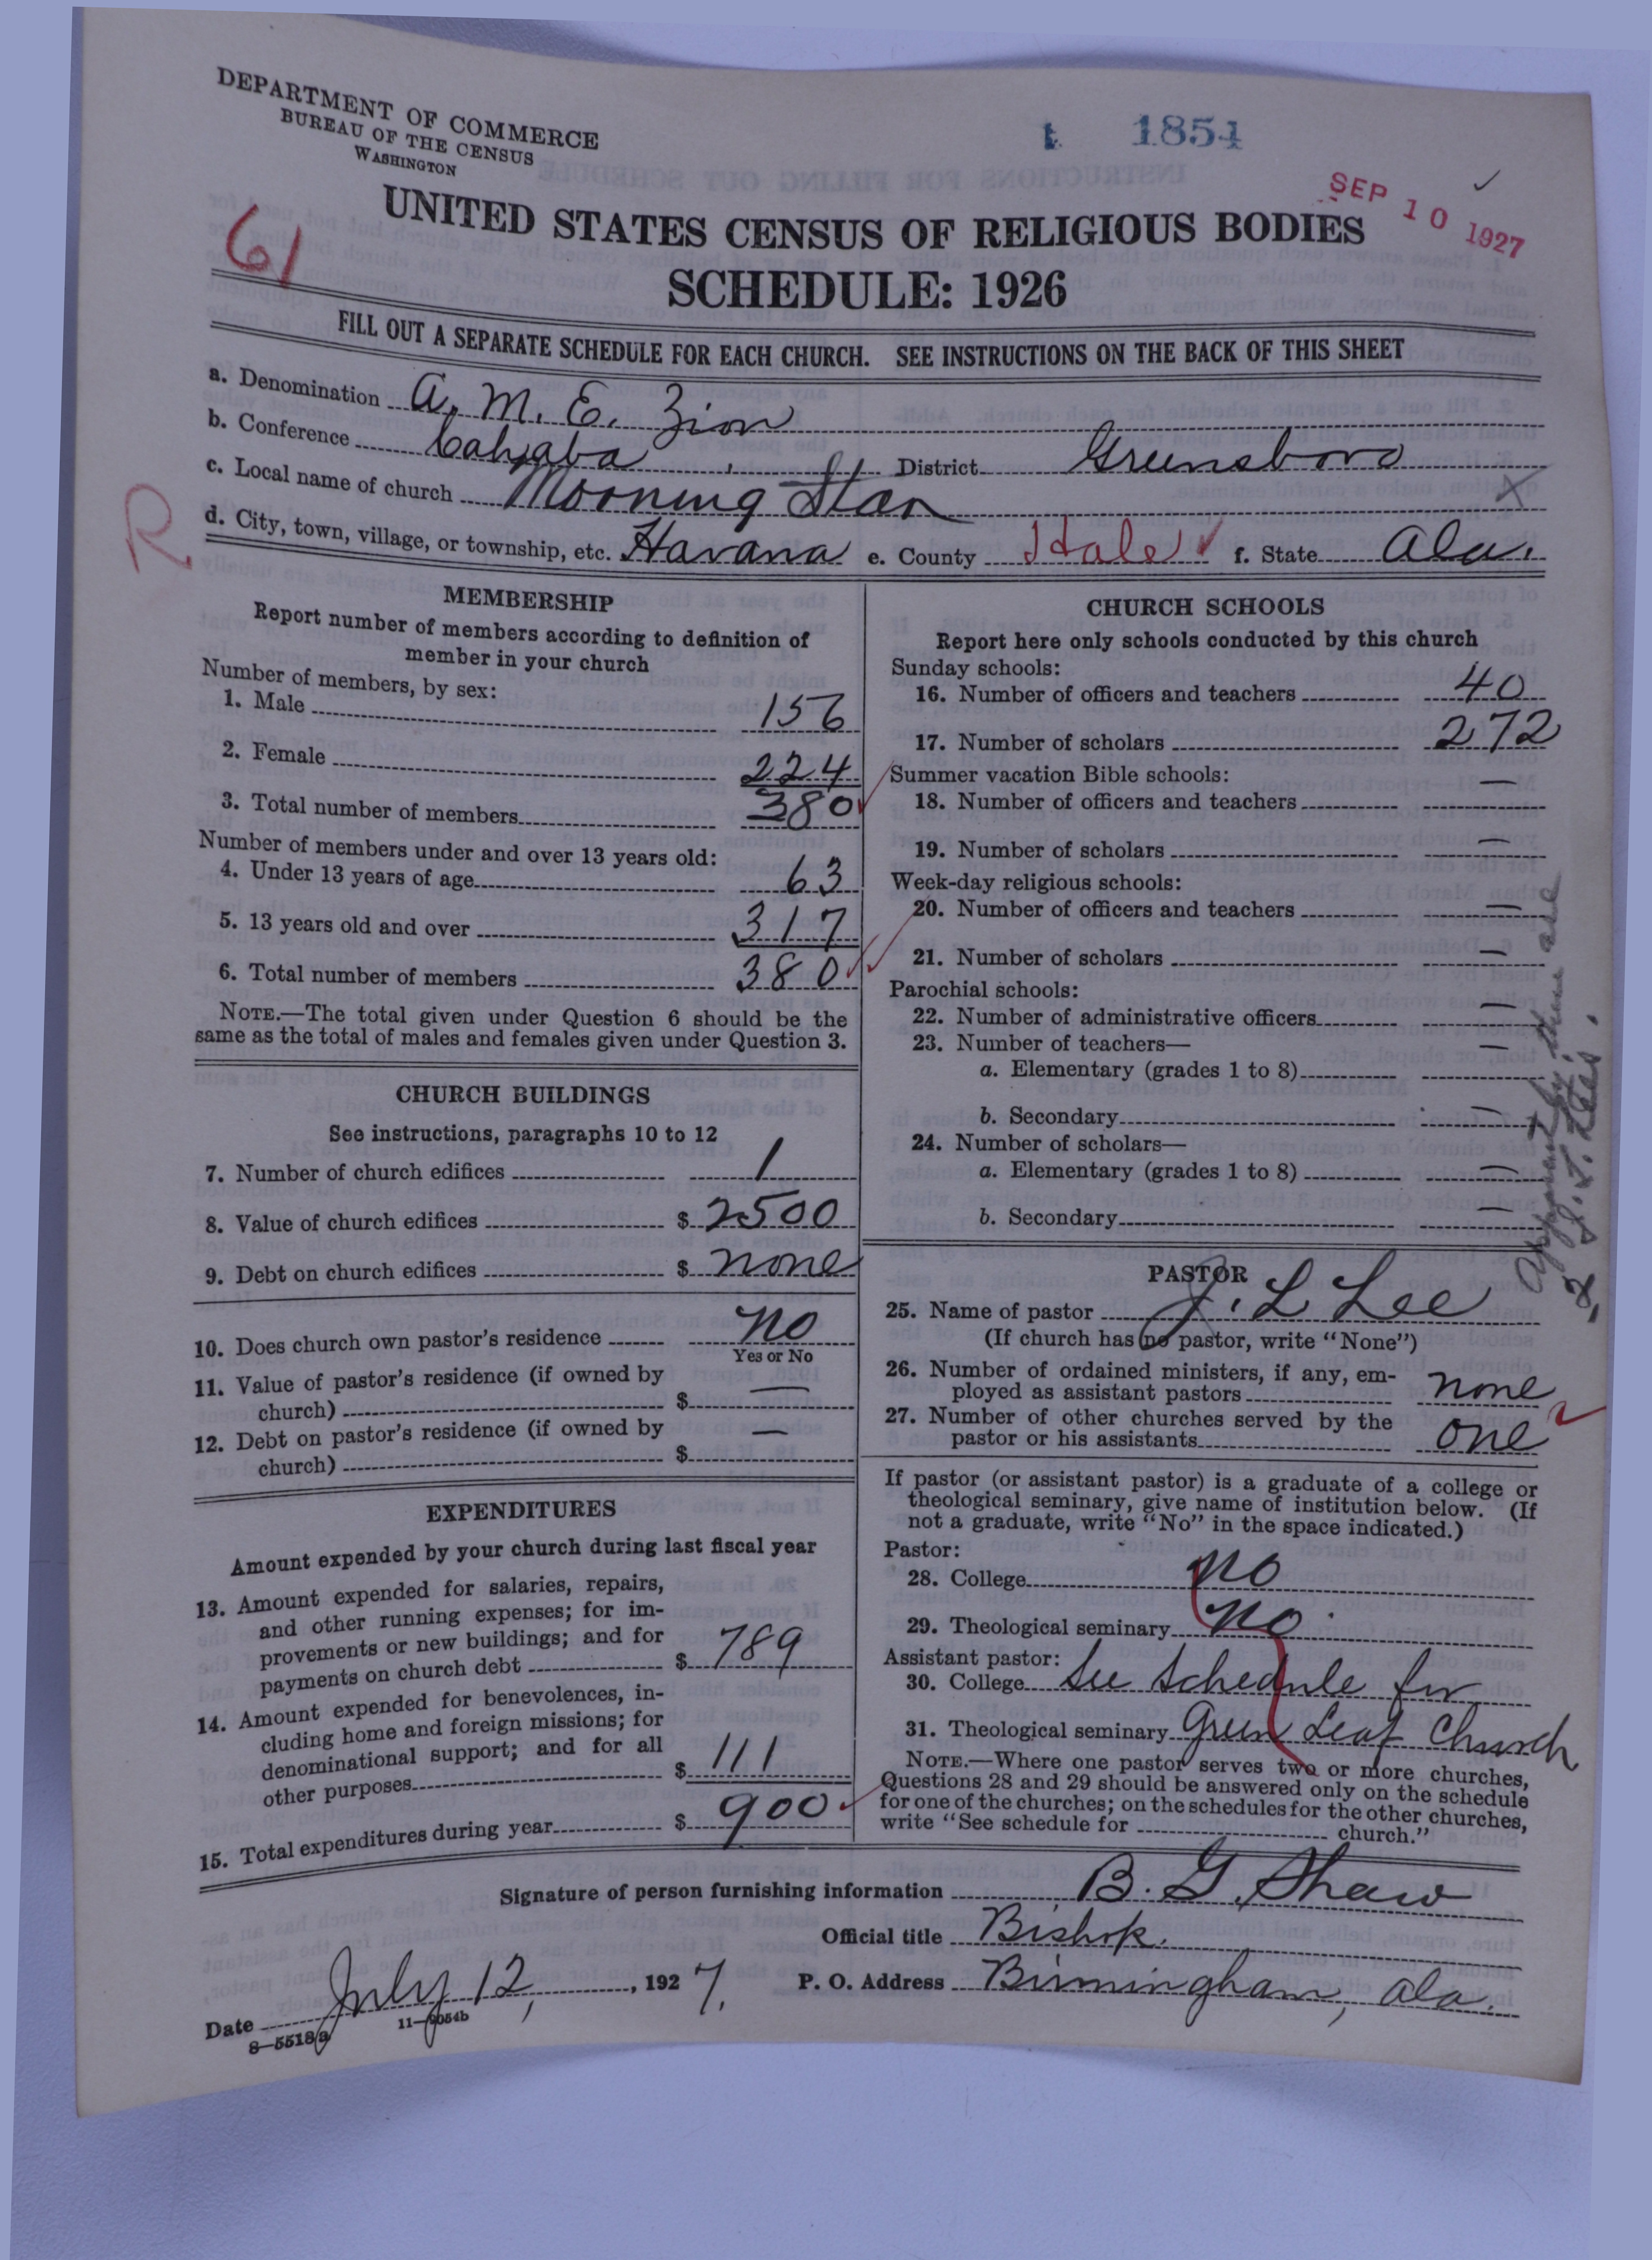 DEPARTMENT OF COMMERCE
BUREAU OF THE CENSUS
WASHINGTON
1854
SEP 10 1927
61
UNITED STATES CENSUS OF RELIGIOUS BODIES
SCHEDULE: 1926
FILL OUT A SEPARATE SCHEDULE FOR EACH CHURCH. SEE INSTRUCTIONS ON THE BACK OF THIS SHEET
a. Denomination A. M. E. Zion
b. Conference Cahaba District Greensboro
c. Local name of church Morning Star
R
d. City, town, village, or township, etc. Havana e. County Hale f. State Ala.
MEMBERSHIP
Report number of members according to definition of
member in your church
Number of members, by sex:
1. Male 156
2. Female 224
3. Total number of members 380
Number of members under and over 13 years old:
4. Under 13 years of age 63
5. 13 years old and over 317
6. Total number of members 380
NOTE.—The total given under Question 6 should be the
same as the total of males and females given under Question 3.
CHURCH BUILDINGS
See instructions, paragraphs 10 to 12
7. Number of church edifices 1
8. Value of church edifices $ 2500
9. Debt on church edifices $ none
10. Does church own pastor's residence no
Yes or No
11. Value of pastor's residence (if owned by
church) $ —
12. Debt on pastor's residence (if owned by
church) $ —
EXPENDITURES
Amount expended by your church during last fiscal year
13. Amount expended for salaries, repairs,
and other running expenses; for im-
provements or new buildings; and for
payments on church debt $ 789
14. Amount expended for benevolences, in-
cluding home and foreign missions; for
denominational support; and for all
other purposes $ 111
15. Total expenditures during year $ 900
CHURCH SCHOOLS
Report here only schools conducted by this church
Sunday schools:
16. Number of officers and teachers 40
17. Number of scholars 272
Summer vacation Bible schools:
18. Number of officers and teachers —
19. Number of scholars —
Week-day religious schools:
20. Number of officers and teachers —
21. Number of scholars —
Parochial schools:
22. Number of administrative officers —
23. Number of teachers—
a. Elementary (grades 1 to 8) —
b. Secondary —
24. Number of scholars—
a. Elementary (grades 1 to 8) —
b. Secondary —
Apparently there are
2 J. L. Lees.
PASTOR
25. Name of pastor J. L Lee
(If church has no pastor, write "None")
26. Number of ordained ministers, if any, em-
ployed as assistant pastors none
27. Number of other churches served by the
pastor or his assistants one
If pastor (or assistant pastor) is a graduate of a college or
theological seminary, give name of institution below. (If
not a graduate, write "No" in the space indicated.)
Pastor:
28. College no
29. Theological seminary no
Assistant pastor:
30. College See Schedule for
31. Theological seminary Green Leaf Church
NOTE.—Where one pastor serves two or more churches,
Questions 28 and 29 should be answered only on the schedule
for one of the churches; on the schedules for the other churches,
write "See schedule for church."
Signature of person furnishing information B. G. Shaw
Official title Bishop.
Date July 12, 1927. P. O. Address Birmingham, Ala.
8—5518a 11—9054b